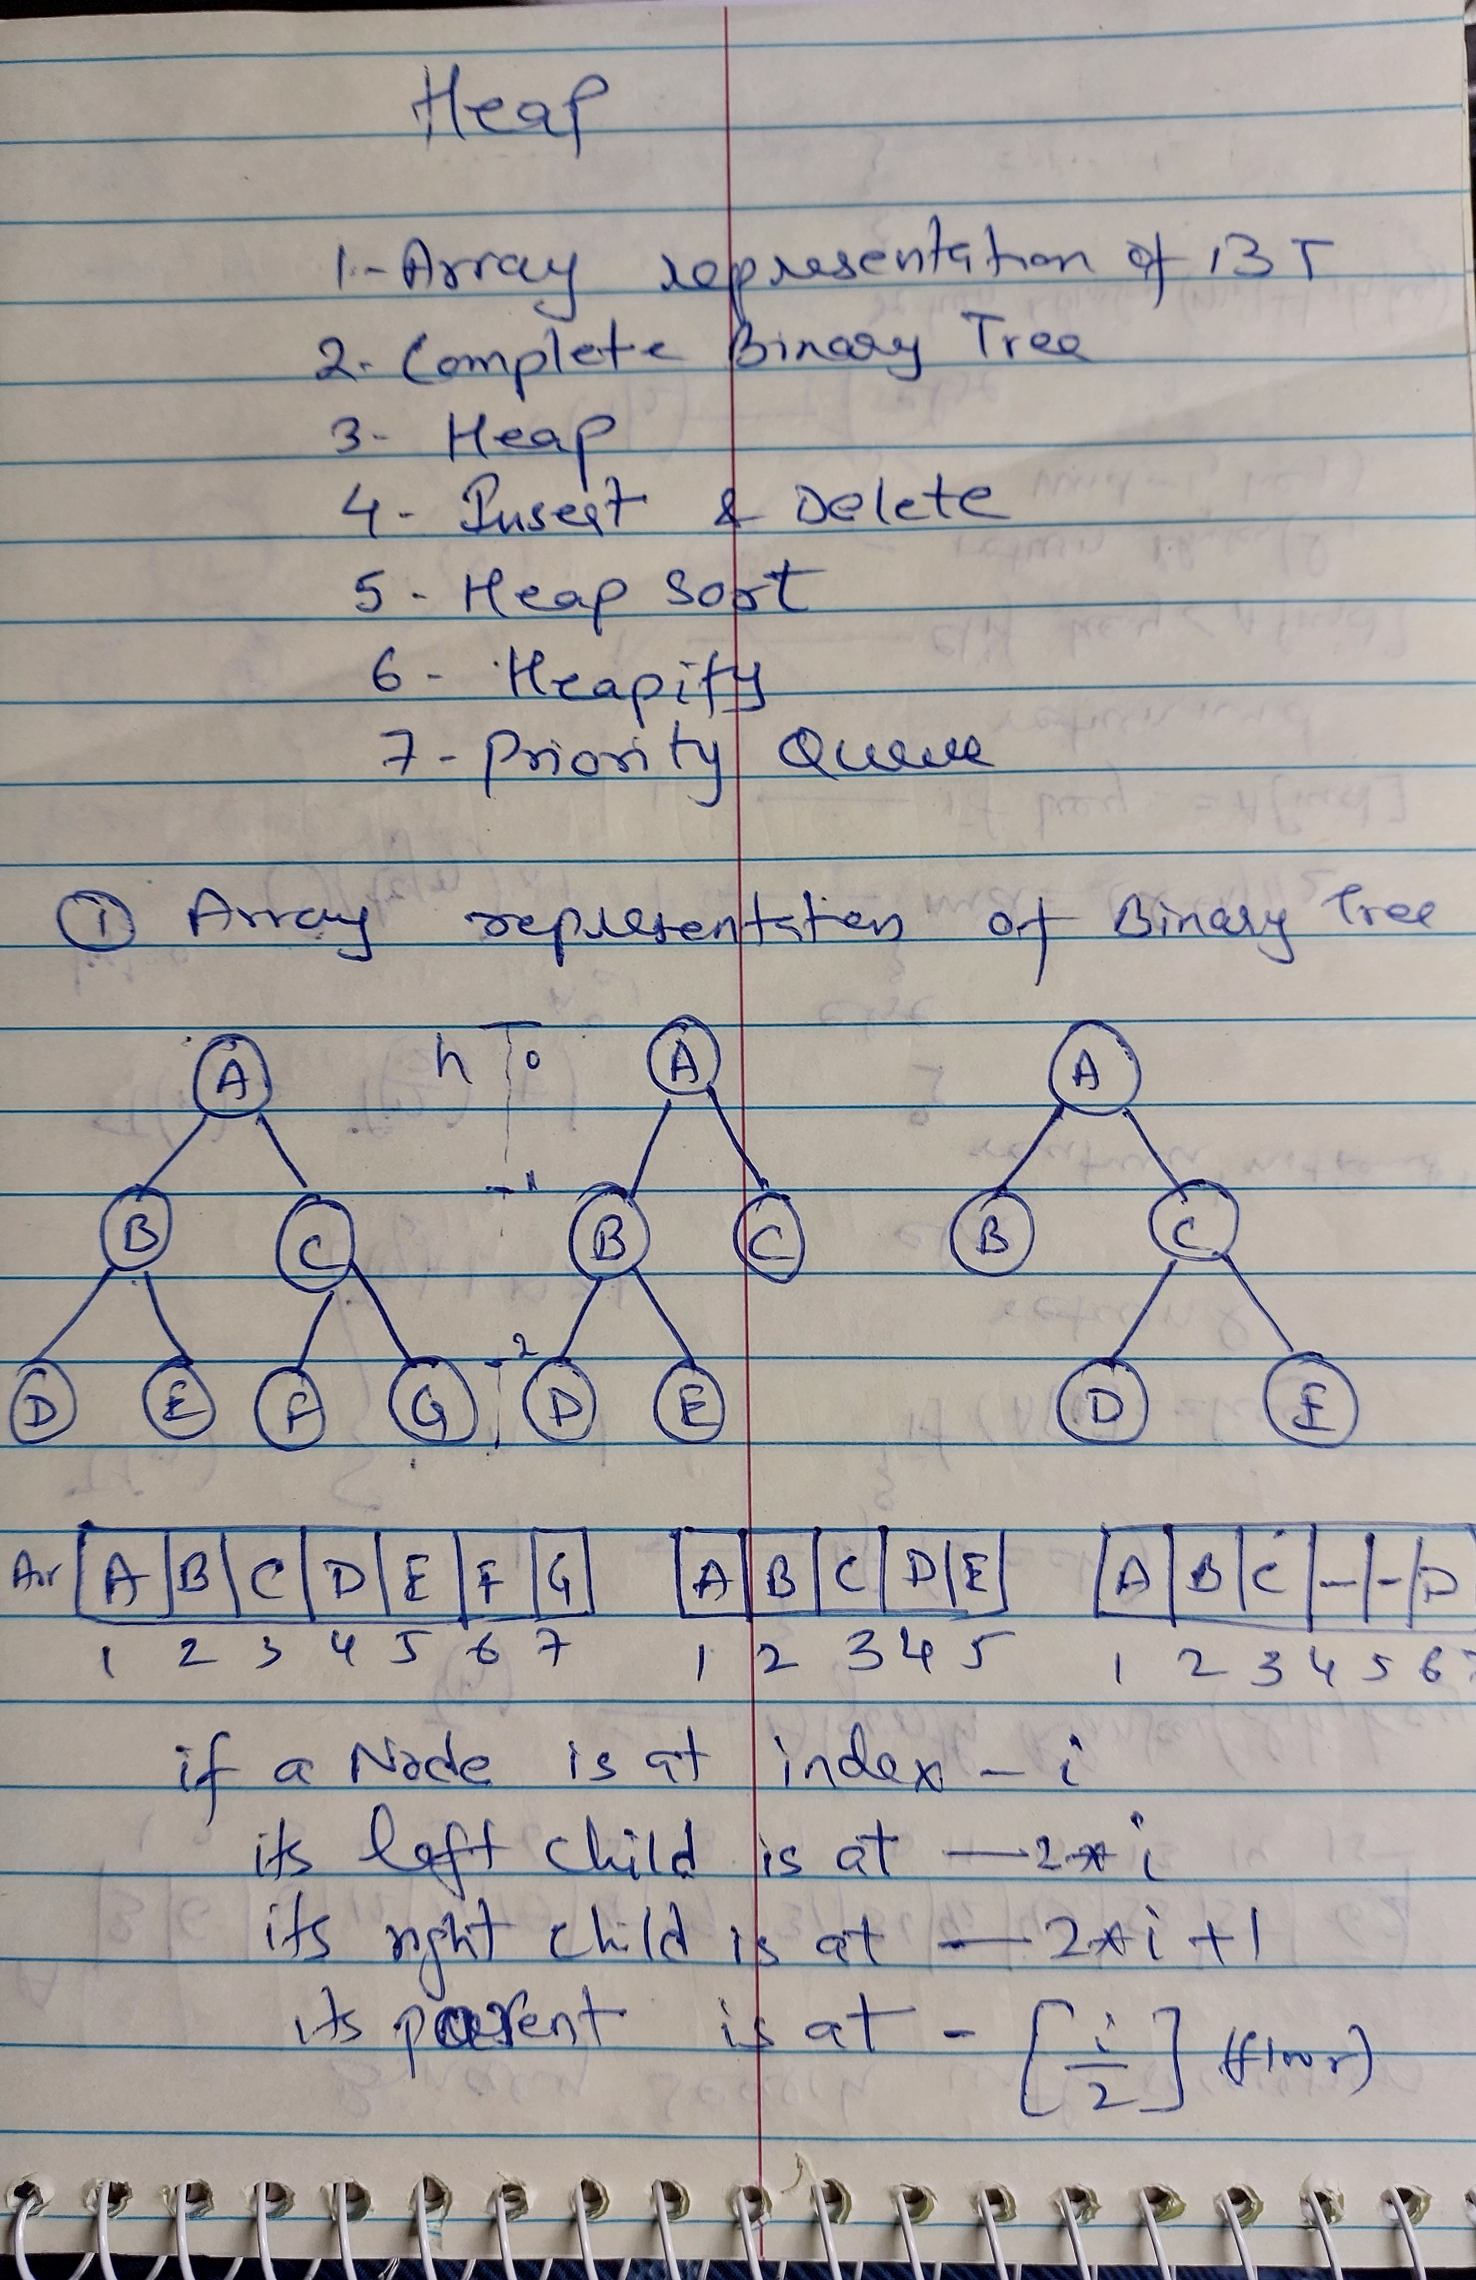 Heap
1- Array representation of BT
2- Complete Binary Tree
3- Heap
4- Insert & Delete
5- Heap Sort
6- Heapify
7- Priority Queue
① Array representation of Binary Tree
A h 0 A A
1
B C B C B C
2
D E F G D E D E
Arr A B C D E F G A B C D E A B C - - D
1 2 3 4 5 6 7 1 2 3 4 5 1 2 3 4 5 6 7
if a Node is at index - i
its left child is at — 2*i
its right child is at — 2*i+1
its parent is at - [i/2] (floor)